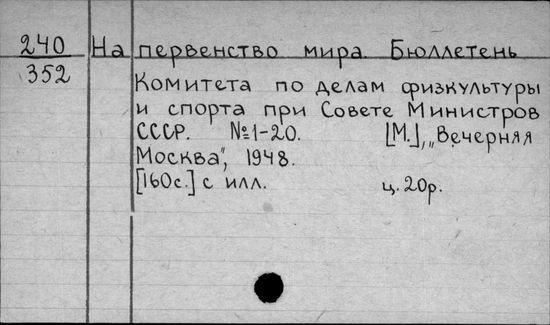 240
352
На первенство мира. Бюллетень
Комитета по делам физкультуры
и спорта при Совете Министров
СССР. №1-20. [М.], „Вечерняя
Москва", 1948.
[160с.] с илл. ц. 20р.